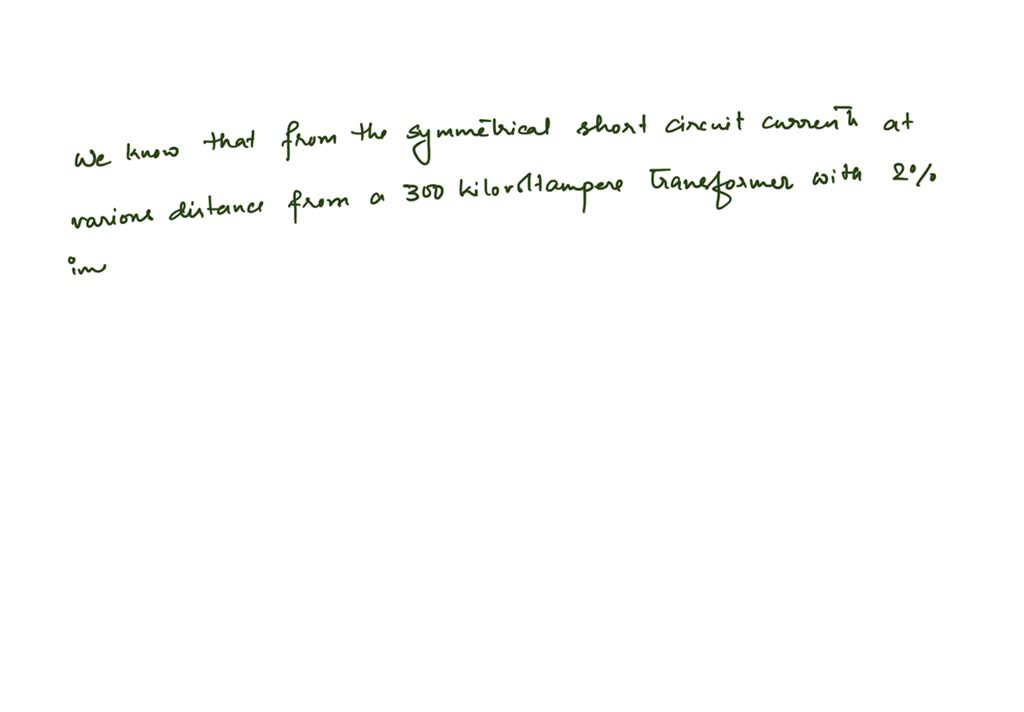 We know that from the symmetrical short circuit current at
various distance from a 300 kilovoltampere transformer with 2%
im